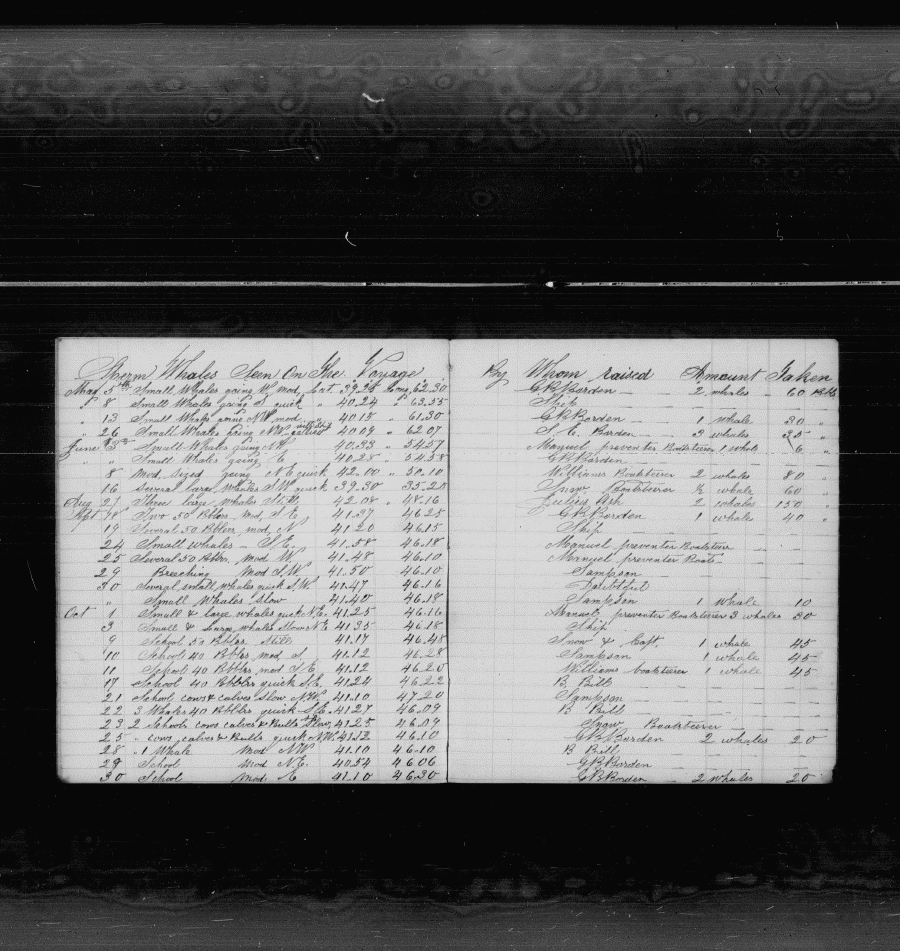 Sperm Whales Seen On The Voyage By Whom raised Amount Taken
May 5th Small Whales going W mod Lat 39.28 Long 62.30 G.B. Borden 2 whales 60 Bbls
" 8 Small Whales going S quick " 40.24 " 63.55 Ship
" 13 Small Whales going NW mod " 40.15 " 61.30 G.B. Borden 1 whale 30 "
" 26 Small Whales going NW " 40.09 " 62.07 S.E. Borden 3 whales 35 "
June Small Whales going NW 40.33 54.57 Manuel preventer Boatsteerer 1 whale 6 "
" " Small Whales going E 40.28 54.58 G.B. Borden
8 Mod. sized going NE quick 42.00 " 50.10 Williams Boatsteerer 2 whales 80 "
16 Several large whales SW quick 39.30 35.20 Snow Boatsteerer ½ whale 60 "
Aug 21 Three large whales 42.08 " 48.16 2 whales 130 "
Two 50 Bblers mod. S E 41.37 46.25 G.B. Borden 1 whale 40 "
19 Several 50 Bblers mod. N 41.20 46.15 Ship
24 Small whales — S.E. 41.58 46.18 Manuel preventer Boatsteerer
25 Several 50 Bblrs. Mod W. 41.48 46.10 Manuel preventer Boats
29 Breaching Mod S.W. 41.50 46.10 Sampson
30 Several small whales quick S.W. 41.47 46.16
" Small Whales Slow 41.40 46.18 Sampson 1 Whale 10
Oct 1 Small & large whales quick N.E. 41.25 46.16 Manuel preventer Boatsteerer 3 whales 30
3 Small & Large whales Slow N E 41.35 46.18 Ship
9 School 50 Bblers Still 41.17 46.48 Snow & Capt. 1 whale 45
10 School 40 Bblers mod S. 41.12 46.28 Sampson 1 whale 45
11 School 40 Bblers mod S.E. 41.12 46.20 Williams boatsteerer 1 whale 45
17 School 40 Bblers quick S.E. 41.24 46.22 B. Bill
21 School cows & calves slow N.W. 41.10 47.20 Sampson
22 3 Whales 40 Bblers quick S.E. 41.27 46.09 B Bill
23 2 Schools cows calves & Bulls Slow 41.25 46.09 Snow Boatsteerer
25 " cows, calves & Bulls quick N.W. 41.12 46.10 G.B. Borden 2 whales 20
28 1 Whale Mod NW. 41.10 46.10 B Bill
29 School Mod N.E. 40.54 46.06 G.B. Borden
30 School Mod. E 41.10 46.30 G.B. Borden 2 whales 20